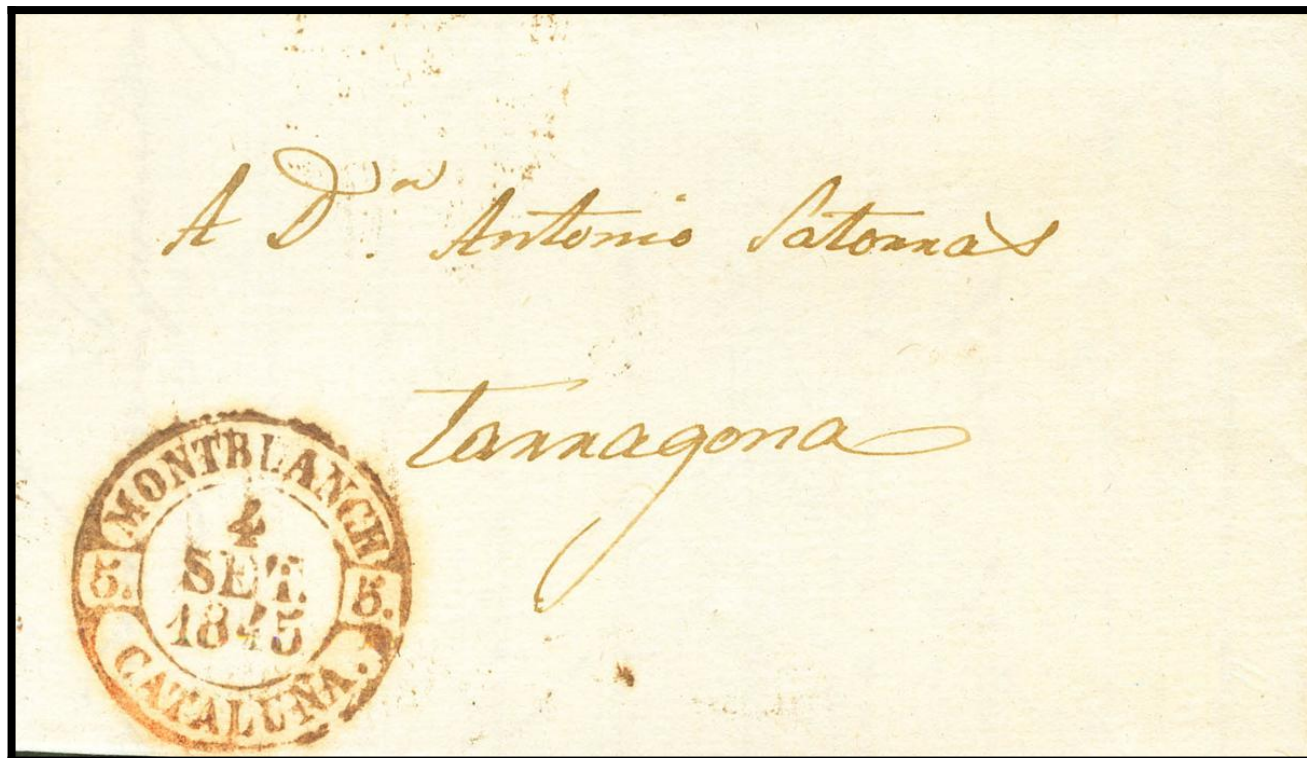 A Dn. Antonio Satorras
Tarragona
MONTBLANCH
5. 5.
4
SET.
1845
CATALUÑA.